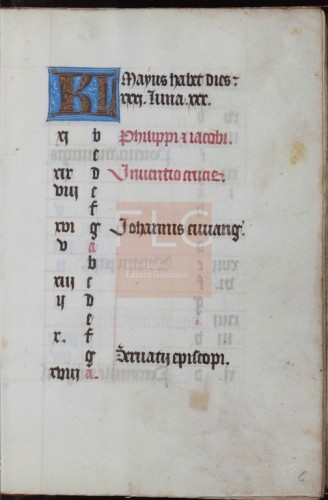 Kl Mayus habet dies
xxxj. luna. xxx.
xj b Philippi & iacobi.
c
xix D Inventio crucis.
viij e
f
xvi g Johannis euuang
v a
b
xiij c
ij D
e
x. f
g Seruatij episcopi.
xviij a.
FLG
Lázaro Galdiano
6